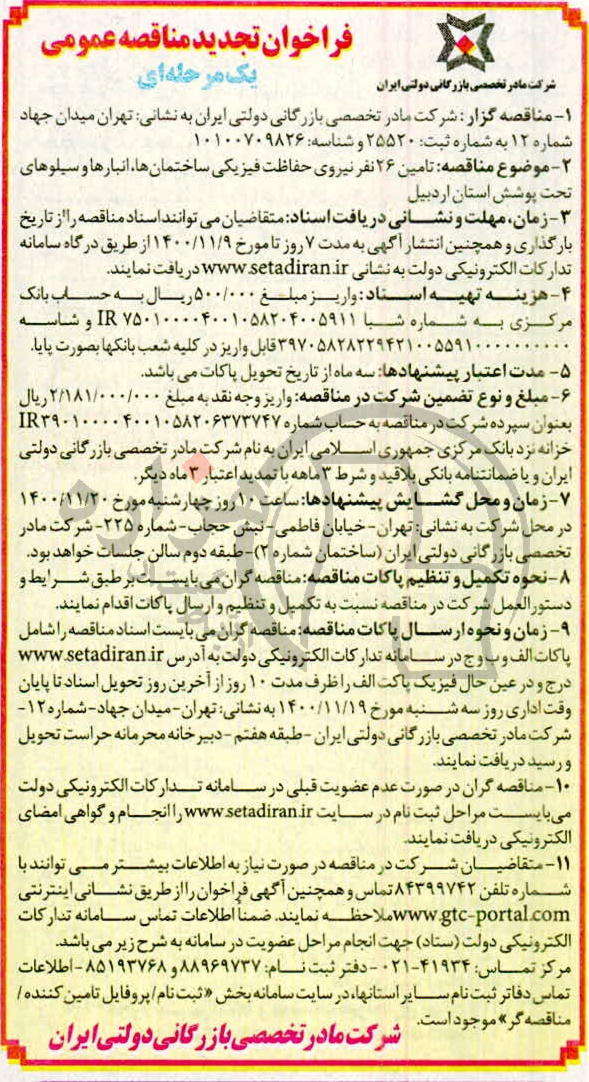 فراخوان تجدید مناقصه عمومی
یک مرحله‌ای
شرکت مادر تخصصی بازرگانی دولتی ایران
۱- مناقصه گزار : شرکت مادر تخصصی بازرگانی دولتی ایران به نشانی: تهران میدان جهاد
شماره ۱۲ به شماره ثبت: ۲۵۵۲۰ و شناسه: ۱۰۱۰۰۷۰۹۸۲۶
۲- موضوع مناقصه: تامین ۲۶ نفر نیروی حفاظت فیزیکی ساختمان‌ها، انبارها و سیلوهای
تحت پوشش استان اردبیل
۳- زمان، مهلت و نشانی دریافت اسناد: متقاضیان می توانند اسناد مناقصه را از تاریخ
بارگذاری و همچنین انتشار آگهی به مدت ۷ روز تا مورخ ۱۴۰۰/۱۱/۹ از طریق درگاه سامانه
تدارکات الکترونیکی دولت به نشانی www.setadiran.ir دریافت نمایند.
۴- هزینه تهیه اسناد: واریز مبلغ ۵۰۰/۰۰۰ ریال به حساب بانک
مرکزی به شماره شبا IR ۷۵۰۱۰۰۰۰۴۰۰۱۰۵۸۲۰۴۰۰۵۹۱۱ و شناسه
۳۹۷۰۵۸۲۸۲۲۹۴۲۱۰۰۵۵۹۱۰۰۰۰۰۰۰۰۰۰ قابل واریز در کلیه شعب بانکها بصورت پایا.
۵- مدت اعتبار پیشنهادها: سه ماه از تاریخ تحویل پاکات می باشد.
۶- مبلغ و نوع تضمین شرکت در مناقصه: واریز وجه نقد به مبلغ ۲/۱۸۱/۰۰۰/۰۰۰ ریال
بعنوان سپرده شرکت در مناقصه به حساب شماره IR۳۹۰۱۰۰۰۰۴۰۰۱۰۵۸۲۰۶۳۷۳۷۴۷
خزانه نزد بانک مرکزی جمهوری اسلامی ایران به نام شرکت مادر تخصصی بازرگانی دولتی
ایران و یا ضمانتنامه بانکی بلاقید و شرط ۳ ماهه با تمدید اعتبار ۳ ماه دیگر.
۷- زمان و محل گشایش پیشنهادها: ساعت ۱۰ روز چهارشنبه مورخ ۱۴۰۰/۱۱/۲۰
در محل شرکت به نشانی: تهران- خیابان فاطمی- نبش حجاب- شماره ۲۲۵- شرکت مادر
تخصصی بازرگانی دولتی ایران (ساختمان شماره ۲)- طبقه دوم سالن جلسات خواهد بود.
۸- نحوه تکمیل و تنظیم پاکات مناقصه: مناقصه گران می بایست بر طبق شرایط و
دستورالعمل شرکت در مناقصه نسبت به تکمیل و تنظیم و ارسال پاکات اقدام نمایند.
۹- زمان و نحوه ارسال پاکات مناقصه: مناقصه گران می بایست اسناد مناقصه را شامل
پاکات الف و ب و ج در سامانه تدارکات الکترونیکی دولت به آدرس www.setadiran.ir
درج و در عین حال فیزیک پاکت الف را ظرف مدت ۱۰ روز از آخرین روز تحویل اسناد تا پایان
وقت اداری روز سه شنبه مورخ ۱۴۰۰/۱۱/۱۹ به نشانی: تهران- میدان جهاد- شماره ۱۲-
شرکت مادر تخصصی بازرگانی دولتی ایران - طبقه هفتم - دبیرخانه محرمانه حراست تحویل
و رسید دریافت نمایند.
۱۰- مناقصه گران در صورت عدم عضویت قبلی در سامانه تدارکات الکترونیکی دولت
می‌بایست مراحل ثبت نام در سایت www.setadiran.ir را انجام و گواهی امضای
الکترونیکی دریافت نمایند.
۱۱- متقاضیان شرکت در مناقصه در صورت نیاز به اطلاعات بیشتر می توانند با
شماره تلفن ۸۴۳۹۹۷۴۲ تماس و همچنین آگهی فراخوان را از طریق نشانی اینترنتی
www.gtc-portal.com ملاحظه نمایند. ضمناً اطلاعات تماس سامانه تدارکات
الکترونیکی دولت (ستاد) جهت انجام مراحل عضویت در سامانه به شرح زیر می باشد.
مرکز تماس: ۴۱۹۳۴-۰۲۱ - دفتر ثبت نام: ۸۸۹۶۹۷۳۷ و ۸۵۱۹۳۷۶۸ - اطلاعات
تماس دفاتر ثبت نام سایر استانها، در سایت سامانه بخش «ثبت نام/ پروفایل تامین کننده/
مناقصه گر» موجود است.
شرکت مادر تخصصی بازرگانی دولتی ایران